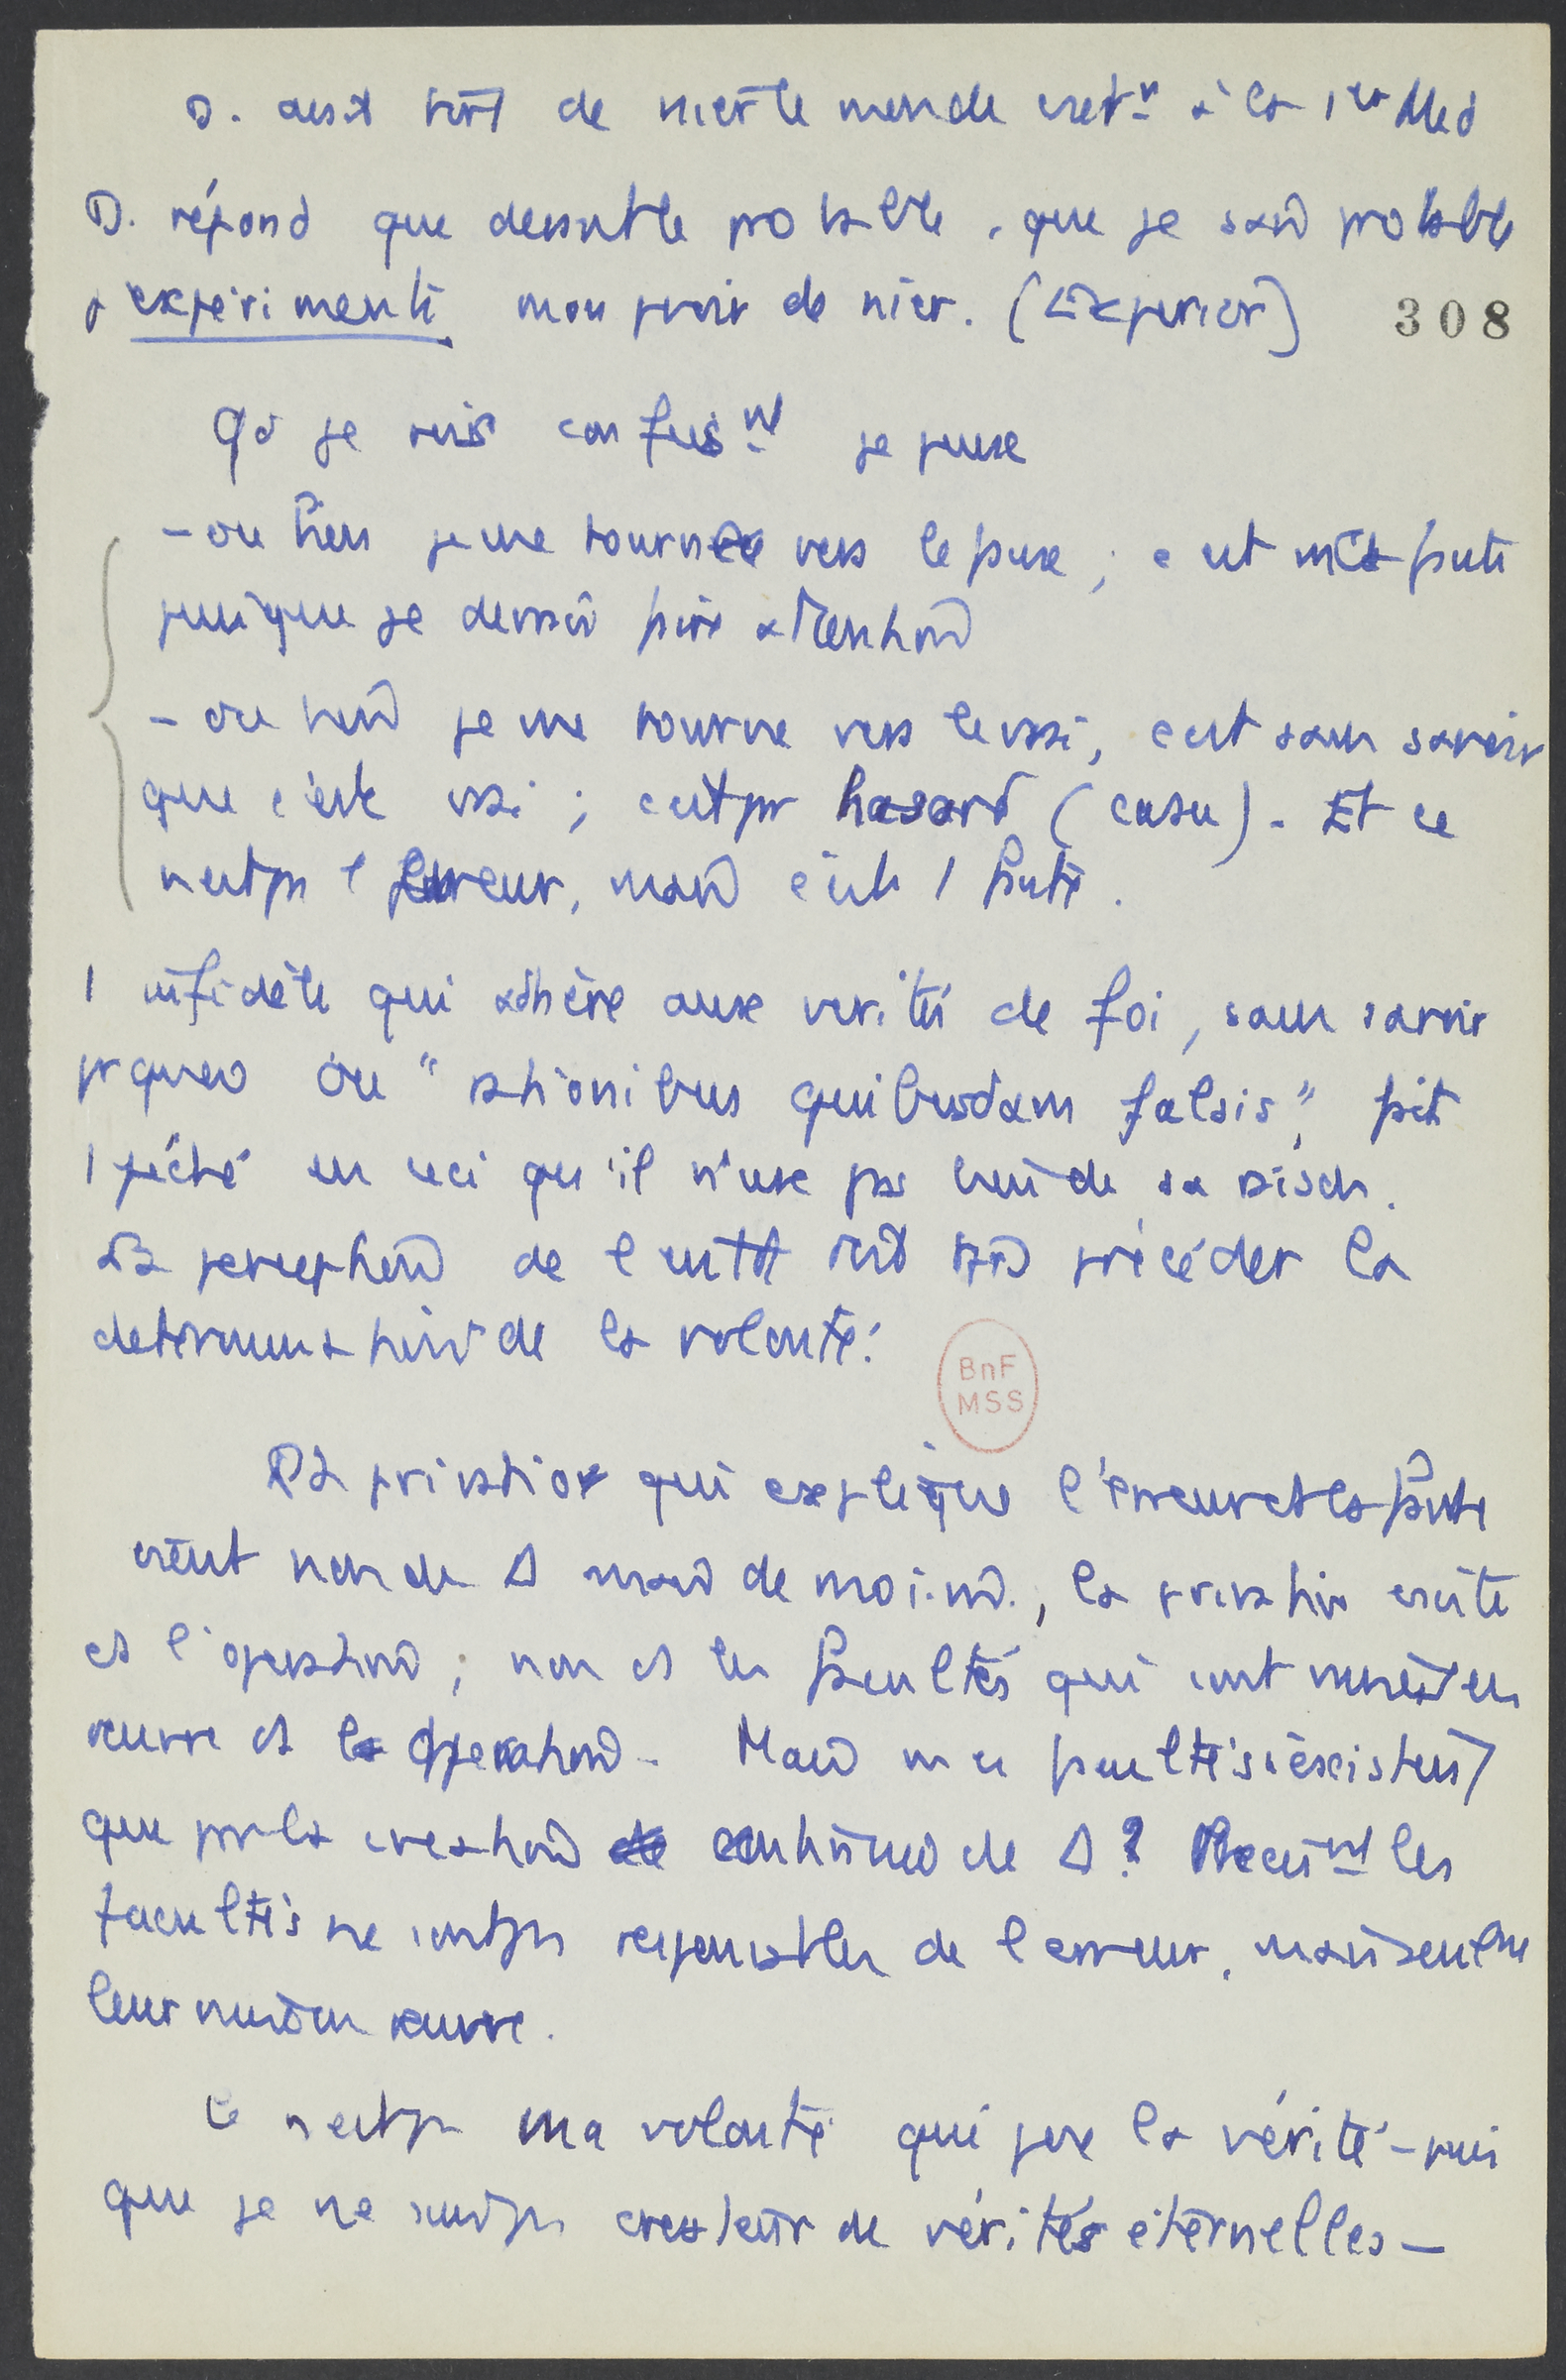 D. avait tort de nier le monde extr à la 1ere Med
D. répond que devant le probable, que je sais probable
j'expérimente mon pouvoir de nier. (Experior) 308
Qd je suis confust je pense
- ou bien je me tourne vers le faux ; c'est ma faute
puisque je devrais faire attention
- ou bien je me tourne vers le vrai, c'est sans savoir
que c'est vrai ; c'est par hasard (casu). Et ce
n'est pas l'erreur, mais c'est 1 faute.
1 infidèle qui adhère aux vérités de foi, sans savoir
pr quoi ou "rationibus quibusdam falsis", fait
1 péché en ceci qu'il n'use pas bien de sa raison.
La perception de l'entt doit tjs précéder la
détermination de la volonté.
BnF
MSS
La privation qui explique l'erreur et la faute
vient non de Δ mais de moi-m., la privation existe
ds l'opération ; non ds les facultés qui sont mises en
œuvre ds la opération. Mais ces facultés n'existent
que par la création continuée de Δ ? Précist les
facultés ne sont pas responsables de l'erreur, mais seulemt
leur mise en œuvre.
Ce n'est pas ma volonté qui pose la vérité - puis
que je ne suis pas créateur de vérités éternelles -